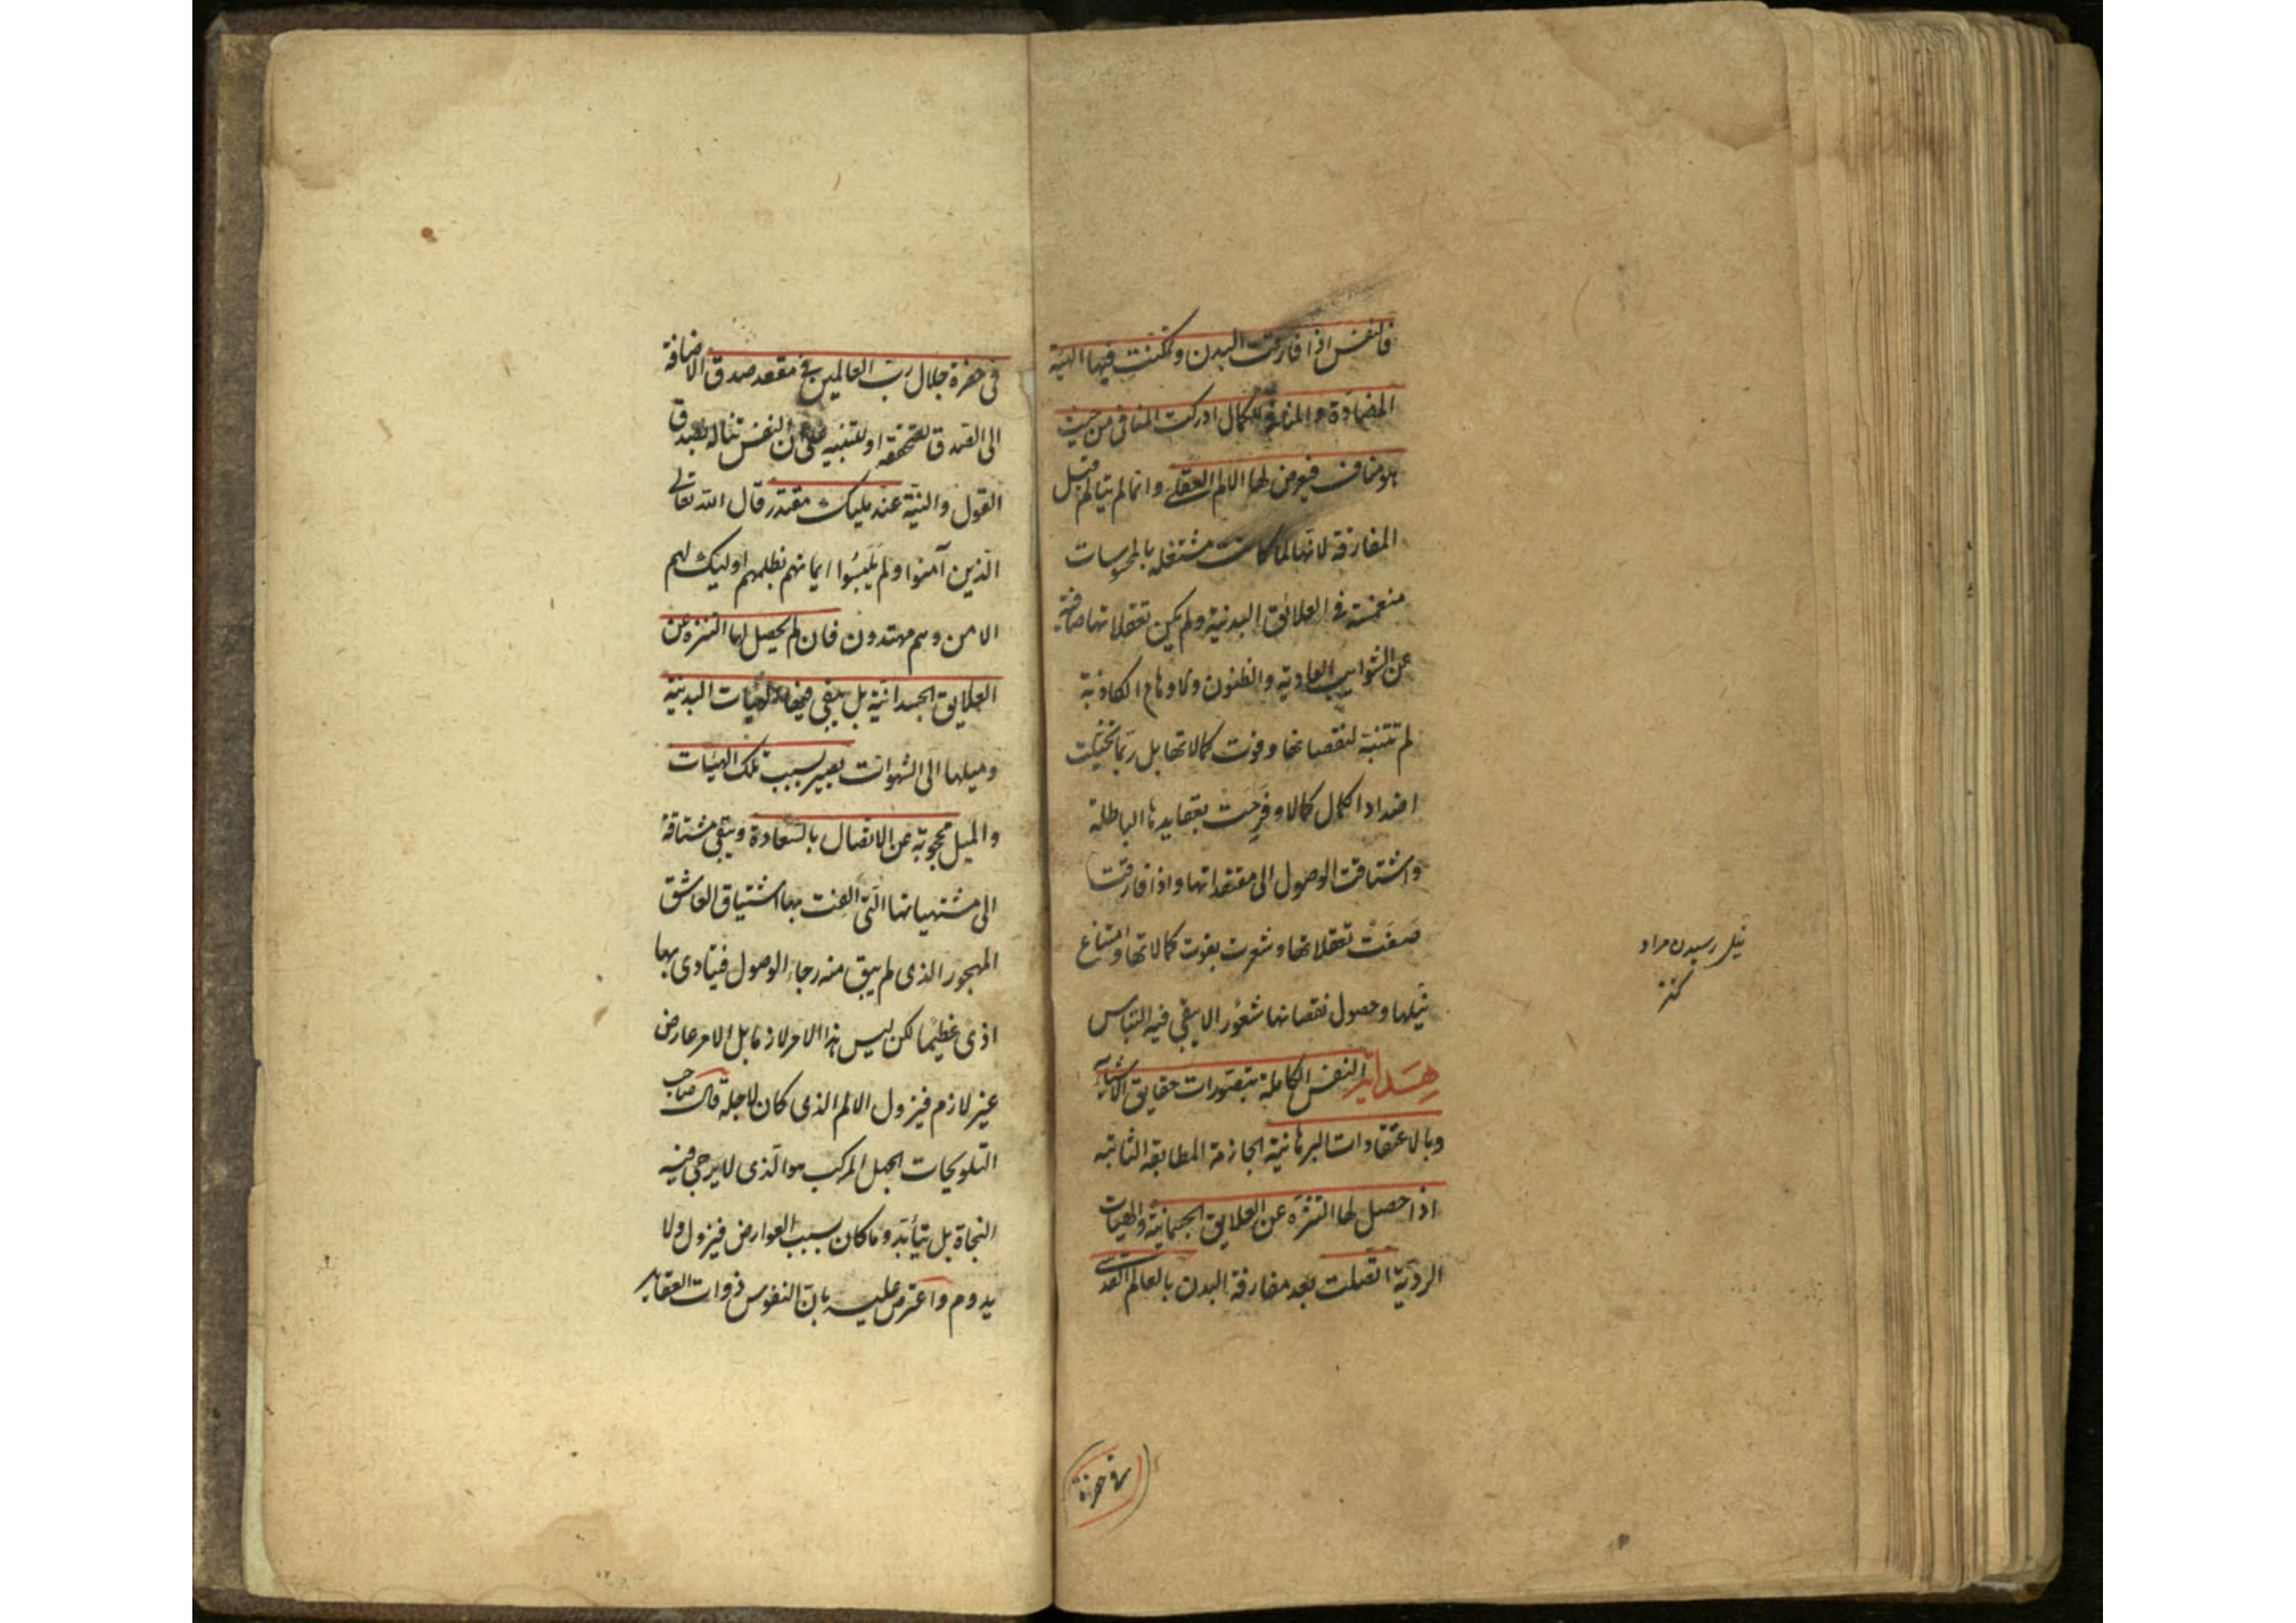 فالنفس اذا فارقت البدن وتمكنت فيها الهيئة
المضادة والمنافية للكمال ادركت المنافى من حيث
هو مناف فيعرض لها الالم العقلى وانما لم يتألم قبل
المفارقة لانها لما كانت مشتغله بالمحسوسات
منغمسة فى العلائق البدنية ولم يكن تعقلاتها صافية
عن الشوايب العادية والظنون والاوهام الكاذبة
لم تتنبه لنقصانها وفوت كمالاتها بل ربما تخيلت
اضداد الكمال كمالا وفرحت بعقايدها الباطلة
واشتاقت الوصول الى معتقداتها واذا فارقت
صفت تعقلاتها وشعرت بفوت كمالاتها وامتناع
نيلها وحصول نقصانها شعورا لا يبقى فيه التباس
هداية النفس الكاملة بتصورات حقايق الاشياء
وبالاعتقادات البرهانية الجازمة المطابقة الثابتة
اذا حصل لها التنزه عن العلايق الجسمانية والهيات
الردية اتصلت بعد مفارقة البدن بالعالم القدسى
فى حضرة
نيل رسيدن مراد
كنز
فى حضرة جلال رب العالمين فى مقعد صدق الاضافة
الى الصدق لتحققه او للتنبيه على ان النفس تناله بصدق
القول والنية عند مليك مقتدر قال الله تعالى
الذين آمنوا ولم يلبسوا ايمانهم بظلمهم اوليك لهم
الامن وهم مهتدون فان لم يحصل لها التنزه عن
العلايق الجسدانية بل يبقى فيها الهيات البدنية
وميلها الى الشهوات يصير بسبب تلك الهيات
والميل محجوبة عن الاتصال بالسعادة ويبقى مشتاقة
الى مشتهياتها التى الفت بها اشتياق العاشق
المهجور الذى لم يبق منه رجاء الوصول فيتاذى بها
اذى عظيما لكن ليس هذا الامر لازما بل الامر عارض
غير لازم فيزول الالم الذى كان لاجله قال صاحب
التلويحات الجهل المركب هو الذى لا يرجى فيه
النجاة بل يتأبد وما كان بسبب العوارض فيزول ولا
يدوم واعترض عليه بان النفوس ذوات العقايد